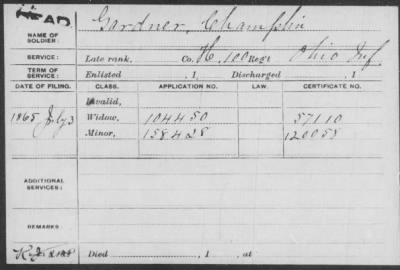 HEAD
NAME OF SOLDIER: Gardner, Champlin
SERVICE: Late rank, Co. H, 100 Regt Ohio Inf.
TERM OF SERVICE: Enlisted , 1 Discharged , 1
DATE OF FILING. CLASS. APPLICATION NO. LAW. CERTIFICATE NO.
Invalid,
1865 July 3 Widow, 104450 57110
Minor, 158428 120058
ADDITIONAL SERVICES:
REMARKS:
Died , 1 , at